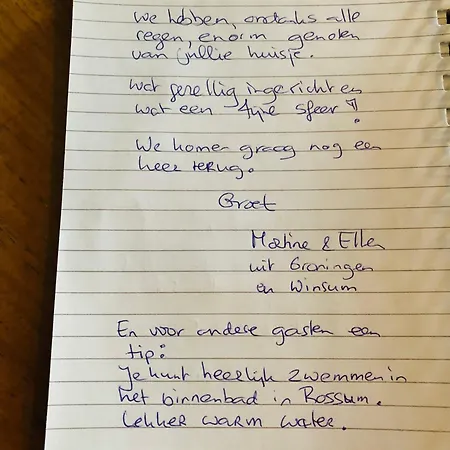 We hebben, ondanks alle
regen, enorm genoten
van jullie huisje.
Wat gezellig ingericht en
wat een fijne sfeer!
We komen graag nog een
keer terug.
Groet
Martine & Ellen
uit Groningen
en Winsum
En voor andere gasten een
tip:
Je kunt heerlijk zwemmen in
het binnenbad in Rossum.
Lekker warm water.